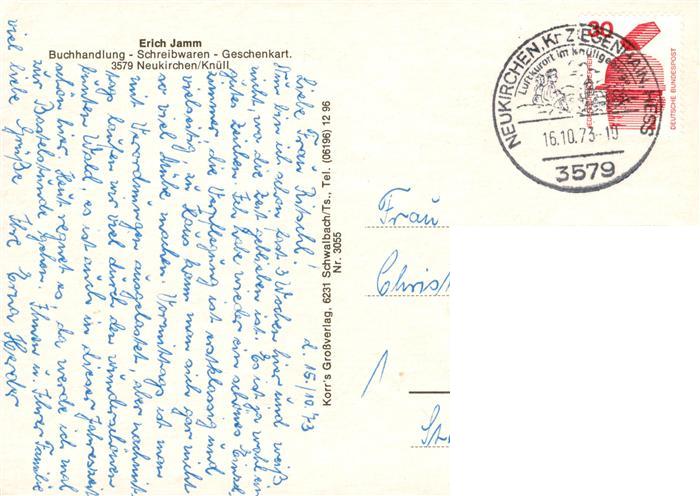 Erich Jamm
Buchhandlung - Schreibwaren - Geschenkart.
3579 Neukirchen/Knüll
d. 15/10.73
Liebe Frau Ritschl!
Nun bin ich schon fast 3 Wochen hier und weiß
nicht, wo die Zeit geblieben ist. Es ist ja wohl ein
gutes Zeichen. Ich habe wieder ein schönes Einzel-
zimmer, die Verpflegung ist erstklassig und
vielseitig, zu Haus kann man sich gar nicht
so viel Mühe machen. Vormittags ist man
mit Verordnungen ausgelastet, aber nachmit-
tags laufen wir viel durch den wunderschönen
bunten Wald, es ist auch in dieser Jahreszeit
schön hier. Heut regnet es, da werde ich mal
zur Bastelstunde gehen. Ihnen u. Ihrer Familie
viel liebe Grüße Ihre Erna Herder
Korr's Großverlag, 6231 Schwalbach/Ts., Tel. (06196) 12 96
Nr. 3055
Frau
Christ
St
30
DEUTSCHE BUNDESPOST
NEUKIRCHEN, Kr ZIEGENHAIN, HESS
Luftkurort im Knüllge
16.10.73-19
3579